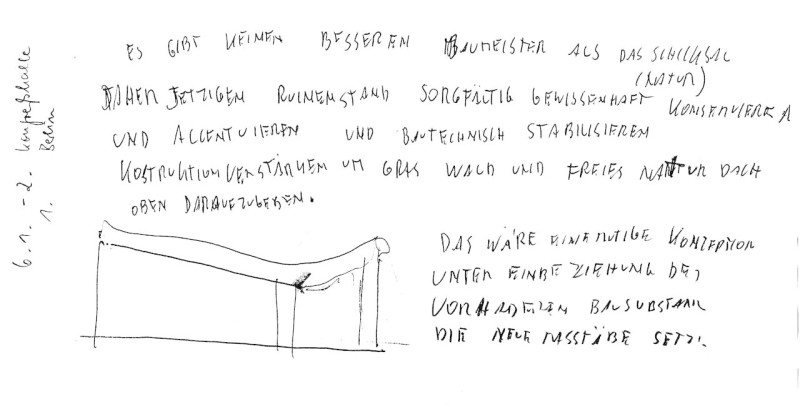 ES GIBT KEINEN BESSEREN BAUMEISTER ALS DAS SCHICKSAL
(NATUR)
DAHER JETZIGEN RUINENSTAND SORGFÄLTIG GEWISSENHAFT KONSERVIEREN
UND ACCENTUIEREN UND BAUTECHNISCH STABILISIEREN
KOSTRUKTION VERSTÄRKEN UM GRAS WALD UND FREIES NATUR DACH
OBEN DARAUFZUGEBEN.
DAS WÄRE EINE MUTIGE KONZEPTION
UNTER EINBEZIEHUNG DER
VORHANDENEN BAUSUBSTANZ
DIE NEUE MASSTÄBE SETZT.
6.1. -2. Kongreßhalle
1. Berlin